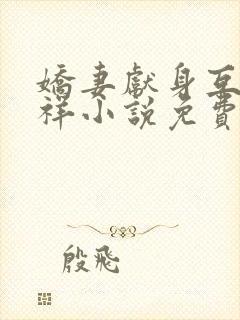 嬌妻獻身互
祥小說免費
殷飛